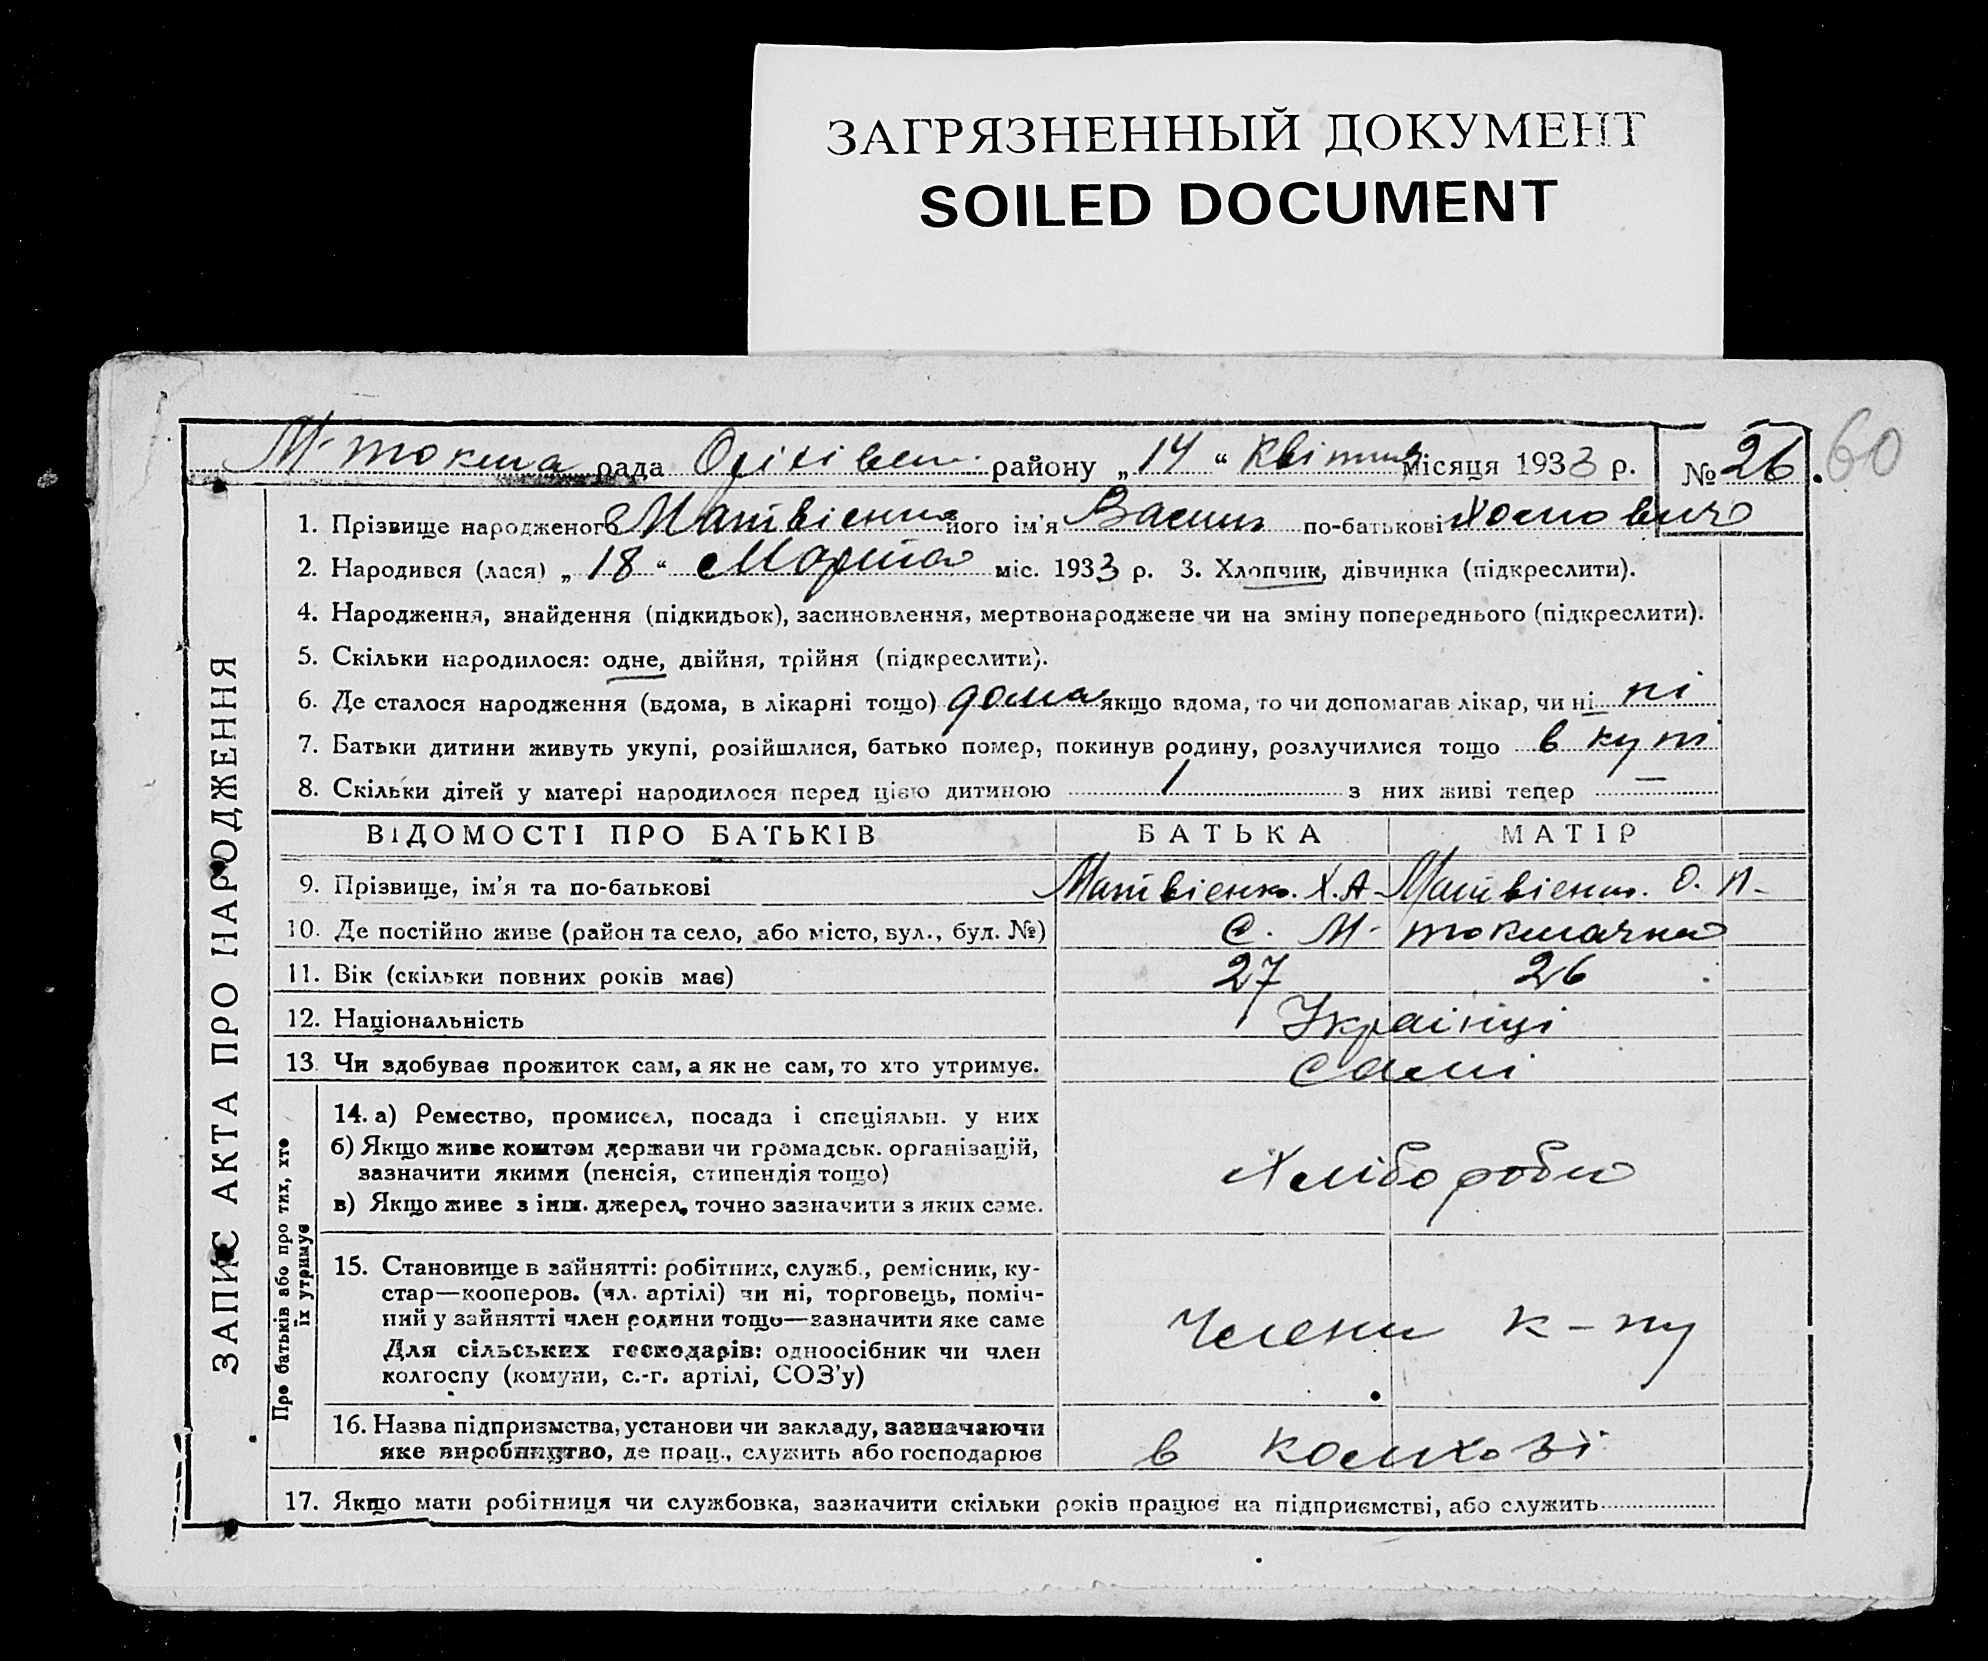 ЗАГРЯЗНЕННЫЙ ДОКУМЕНТ
SOILED DOCUMENT
60
М-токма рада Оріхівськ. району „14“ Квітня місяця 1933 р. № 26
ЗАПИС АКТА ПРО НАРОДЖЕННЯ
1. Прізвище народженого Матвієнко його ім'я Василь по-батькові
2. Народився (лася) „18“ Марта міс. 1933 р. 3. Хлопчик, дівчинка (підкреслити).
4. Народження, знайдення (підкидьок), засиновлення, мертвонароджене чи на зміну попереднього (підкреслити).
5. Скільки народилося: одне, двійня, трійня (підкреслити).
6. Де сталося народження (вдома, в лікарні тощо) дома якщо вдома, то чи допомагав лікар, чи ні ні
7. Батьки дитини живуть укупі, розійшлися, батько помер, покинув родину, розлучилися тощо в купі
8. Скільки дітей у матері народилося перед цією дитиною 1 з них живі тепер —
ВІДОМОСТІ ПРО БАТЬКІВ БАТЬКА МАТІР
9. Прізвище, ім'я та по-батькові Матвієнко. Х. А- Матвієнко. О. П-
10. Де постійно живе (район та село, або місто, вул., буд. №) С. М- токмачка
11. Вік (скільки повних років має) 27 26
12. Національність Українці
13. Чи здобуває прожиток сам, а як не сам, то хто утримує. Самі
Про батьків або про тих, хто
їх утримує
14. а) Ремество, промисел, посада і спеціяльн. у них
б) Якщо живе коштом держави чи громадськ. організацій,
зазначити якими (пенсія, стипендія тощо)
в) Якщо живе з інш. джерел, точно зазначити з яких саме.
Хлібороби
15. Становище в зайнятті: робітник, служб., ремісник, ку-
стар—кооперов. (чл. артілі) чи ні, торговець, поміч-
ний у зайнятті член родини тощо—зазначити яке саме
Для сільських господарів: одноосібник чи член
колгоспу (комуни, с.-г. артілі, СОЗ'у)
Члени к-пу
16. Назва підприємства, установи чи закладу, зазначаючи
яке виробництво, де прац., служить або господарює
в колхозі
17. Якщо мати робітниця чи службовка, зазначити скільки років працює на підприємстві, або служить